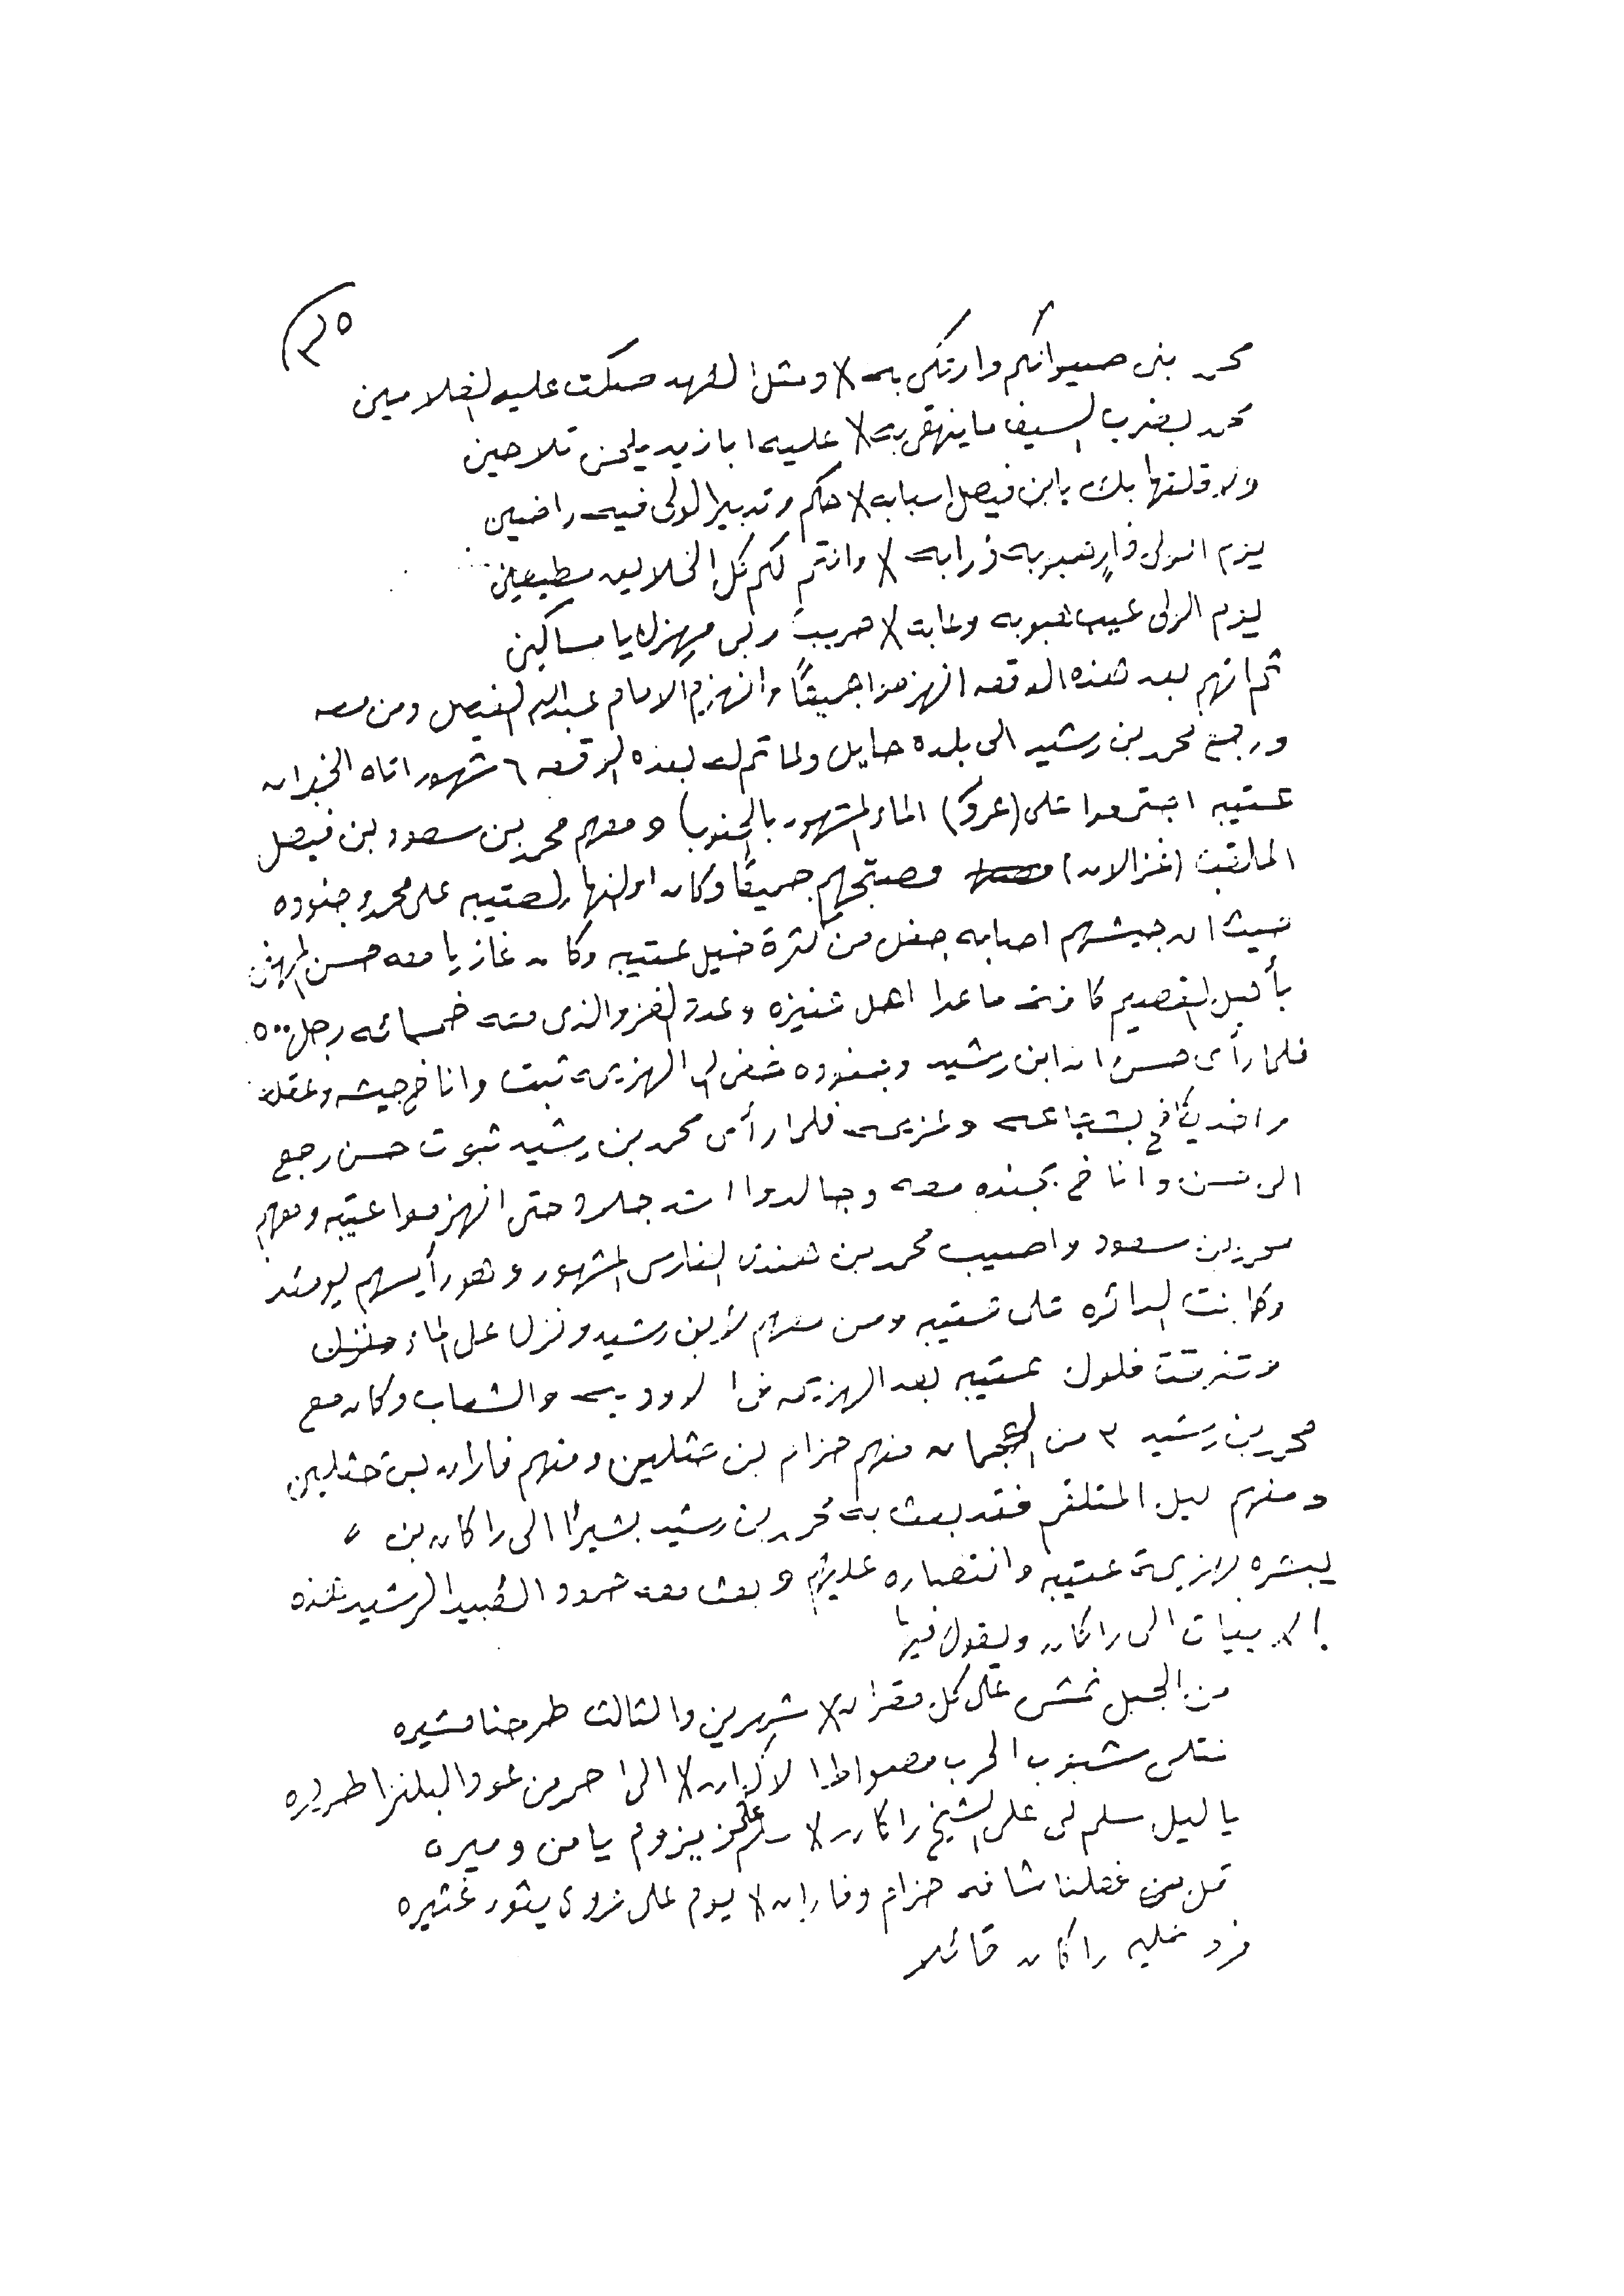 ٣٥
محمد بنى صيوانكم وارتكى به × ومثل الفهد صكت عليه الغلامين
محمد بضرب السيف ما ينهقى به × عليه ابا زيد يلحق تلاحين
ولا قلتها بك يا ابن فيصل سبابه × حكم وتدبير الولى فيه راضين
يزم الولى ذرابه × وانتم لكم كل الخلايق مطيعين
ليزم الولى عيب وعابت × حريب ربى مهزله يا مساكين
ثم انهم بعد هذه الوقعه انهزموا جميعاً وانهزم الامام عبدالله الفيصل ومن معه
ورجع محمد بن رشيد الى بلده حايل ولما تم له بعده الوقعه ٦ شهور اتاه الخبر ان
عتيبه اجتمعوا على (عروى) الماء المشهور بالجنوب) ومعهم محمد بن سعود بن فيصل
الملقب (غزالان) فصبحهم جميعاً وكان اول النهار لعتيبه على محمد وجنوده
حيث ان جيشهم اصابه جفل من كثرة خيل عتيبه وكان غازيا معه حسن المهنا
بأهل القصيم كافة ما عدا اهل عنيزه وعدة الغزو الذى معه خمسمائه رجل ٥٠٠
فلما رأى حسن ان ابن رشيد وجنوده الهزيمه ثبت واناخ جيشه وعقله
واخذ يكافح بشجاعه وعزيمه فلما رأى محمد بن رشيد ثبوت حسن رجع
الى حسن واناخ بجنده معه وجالدوا اشد جلاد حتى انهزموا عتيبه ومعهم
محمد بن سعود واصيب محمد بن هندى الفارس المشهور وهو رأيسهم يومئذ
وكانت الدائره على عتيبه ومن معهم لابن رشيد ونزل على الماء
وتفرقت فلول عتيبه بعد الهزيمه فى الاوديه والشعاب وكان مع
محمد بن رشيد ٣ من العجمان منهم حزام بن حثلين ومنهم فاران بن حثلين
ومنهم ليل المتلقم فقد بعث به محمد بن رشيد بشيراً الى راكان بن ״
يبشره بهزيمة عتيبه وانتصاره عليهم وبعث معه حمود العبيد الرشيد هذه
الابيات الى راكان ويقول فيها
من الجبل نمشى على كل مقران × شهرين والثالث طرحنا مشيره
نتلى شبوب الحرب مصواط الاكوان × الى احمر من عود البلنزا طريره
يا ليل سلم لى على الشيخ راكان × سلام علم يزوم يا من وميره
قل من فعلنا شافه حزام وفاران × يوم على عروى يثور عثيره
فرد عليه راكان قائلا